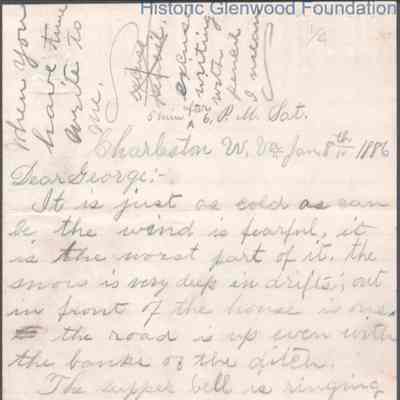 Historic Glenwood Foundation
When you
have time
write to
me.
excuse
writing
with
pencil
I mean
5 min after 6, P. M. Sat.
Charleston W. Va. Jan. 8th 1886
Dear George:-
It is just as cold as can
be the wind is fearful, it
is the worst part of it. The
snow is very deep in drifts; out
in front of the house is one.
the road is up even with
the banks of the ditch.
The supper bell is ringing